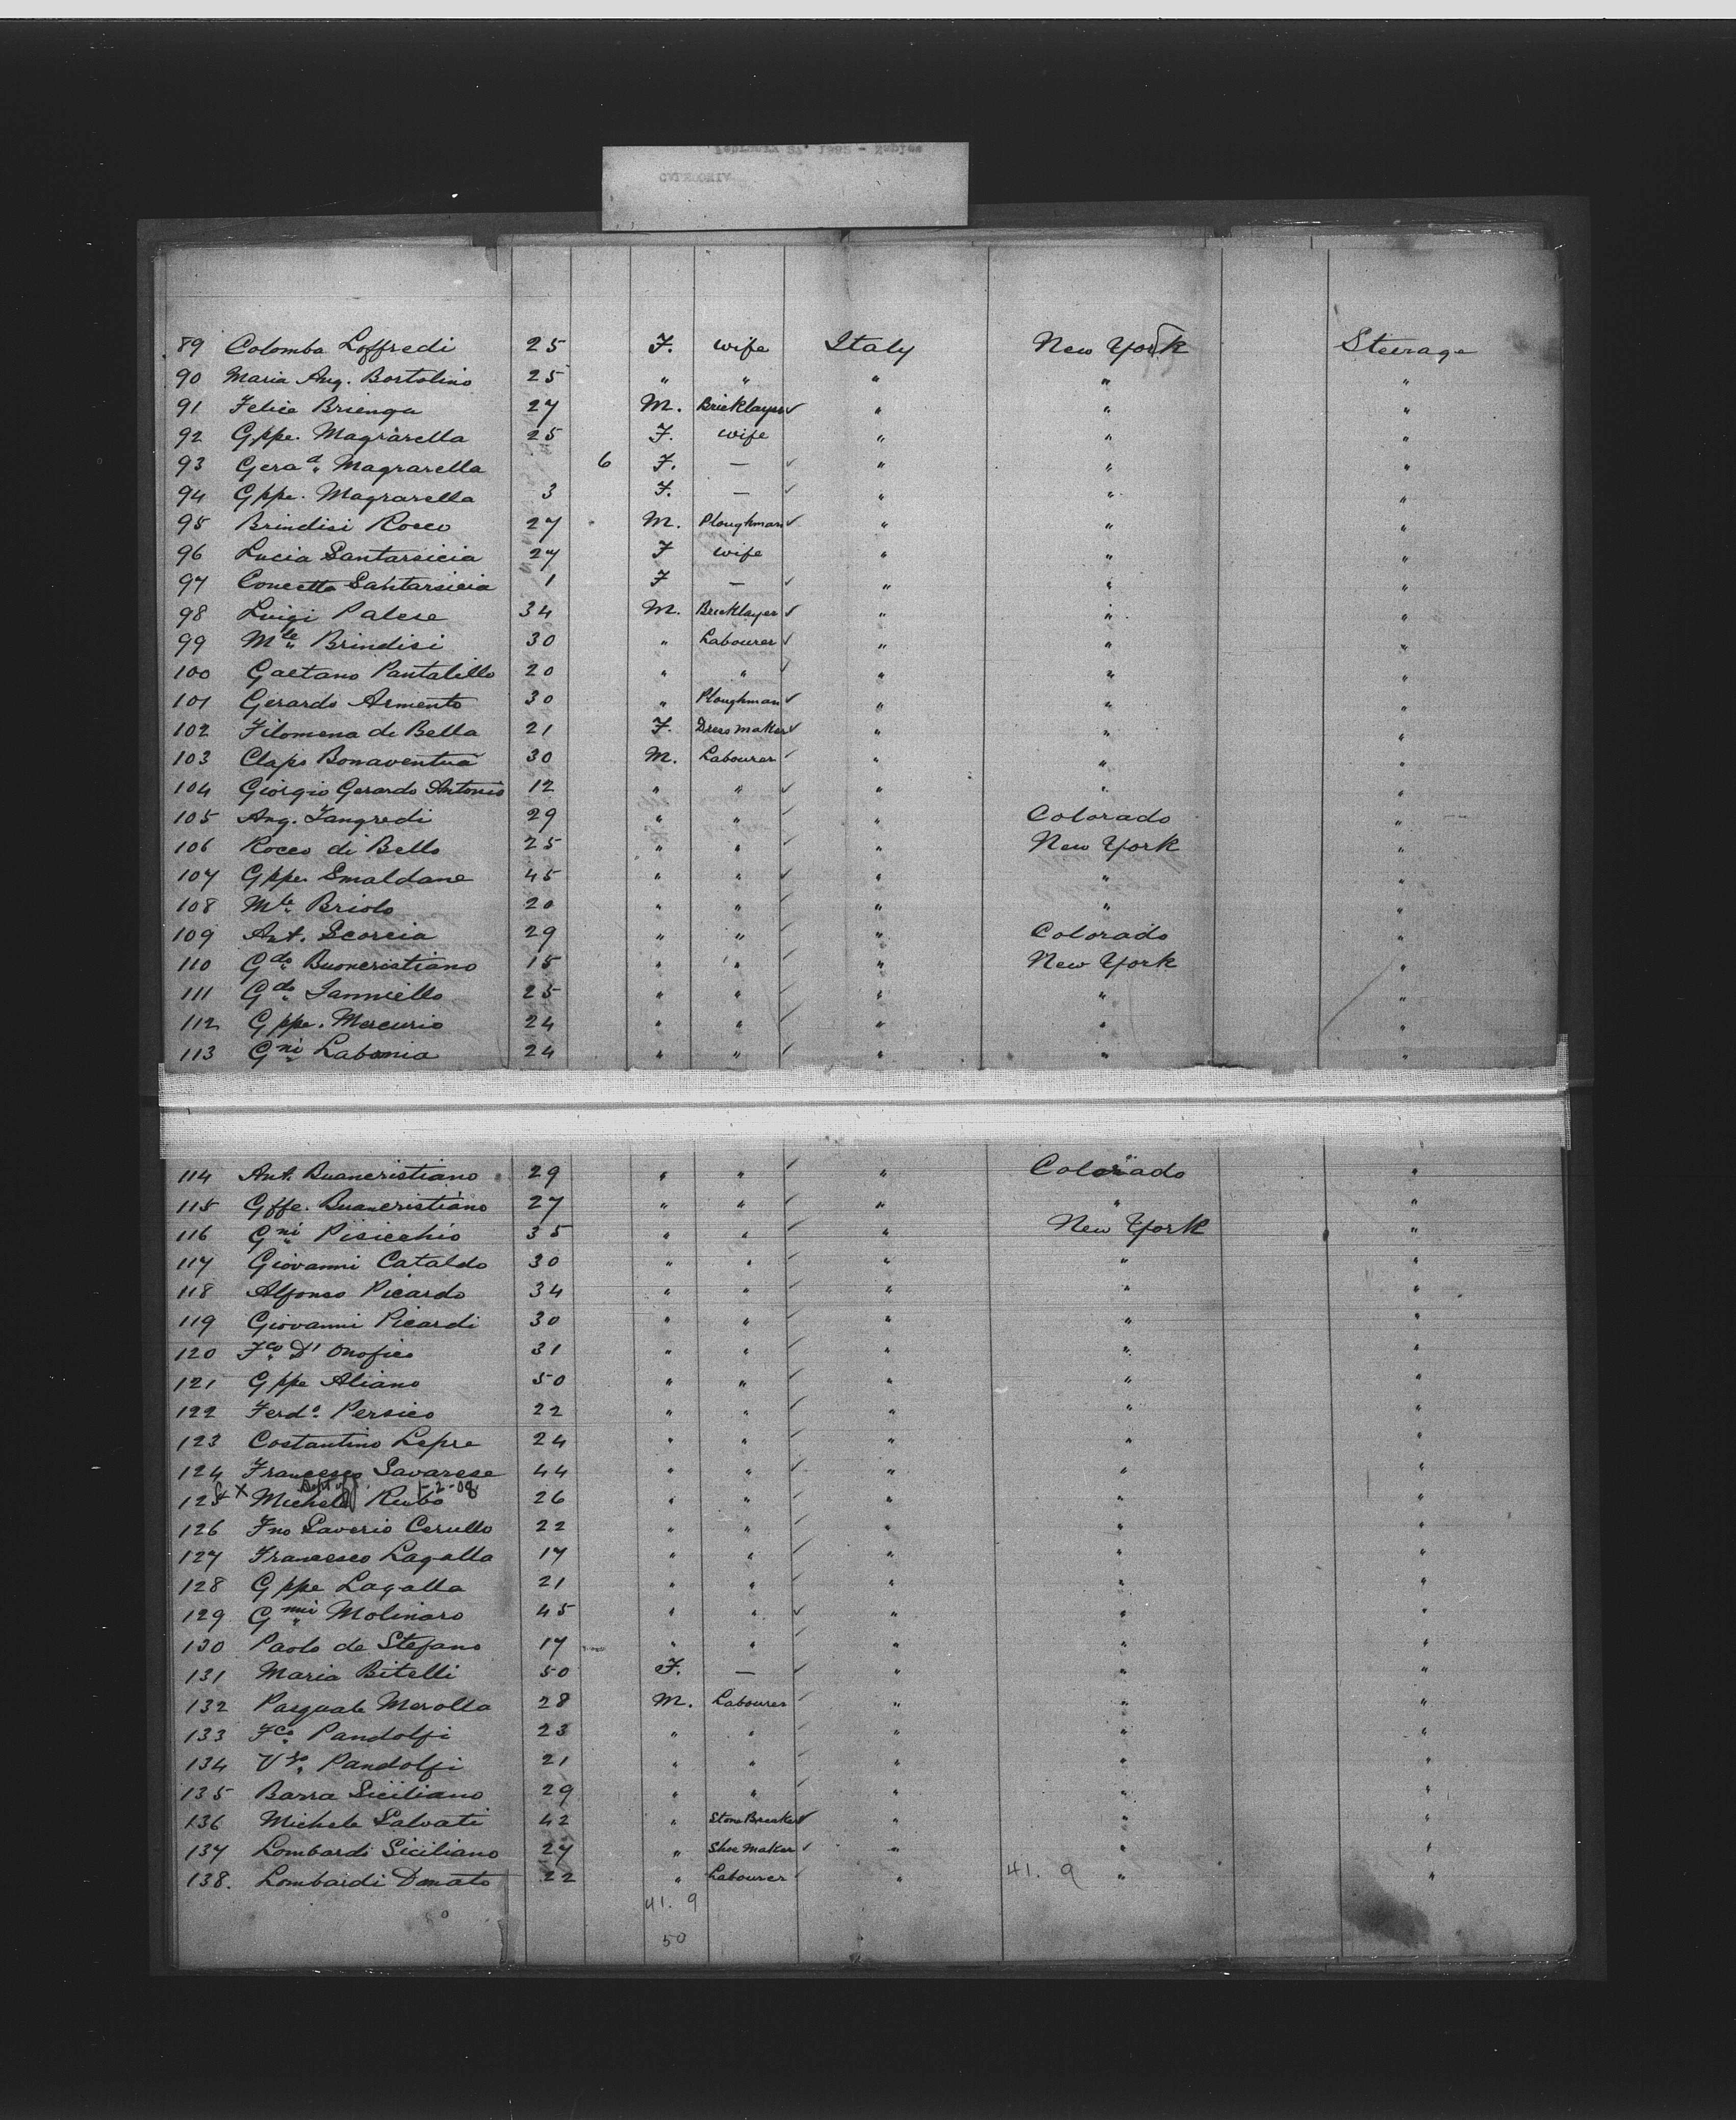 89 Colomba Loffredi 25 F. wife Italy New York Steerage
90 Maria Ang. Bortolino 25 " " " " "
91 Felice Brienga 27 M. Bricklayer ✓ " " "
92 Gppe. Magrarella 25 F. wife " " "
93 Gera d. Magrarella 6 F. — ✓ " " "
94 Gppe. Magrarella 3 F. — ✓ " " "
95 Brindisi Rocco 27 M. Ploughman ✓ " " "
96 Lucia Santarsicia 27 F wife " " "
97 Concetta Santarsicia 1 F — ✓ " " "
98 Luigi Palese 34 M. Bricklayer ✓ " " "
99 Mle Brindisi 30 " Labourer ✓ " " "
100 Gaetano Pantalillo 20 " " ✓ " " "
101 Gerardo Armento 30 " Ploughman ✓ " " "
102 Filomena di Bella 21 F. Dress maker ✓ " " "
103 Claps Bonaventua 30 M. Labourer ✓ " " "
104 Giorgio Gerardo Antonio 12 " " ✓ " " "
105 Ang. Tangredi 29 " " ✓ " Colorado "
106 Rocco di Bello 25 " " ✓ " New York "
107 Gppe. Smaldane 45 " " ✓ " " "
108 Mle Briolo 20 " " ✓ " " "
109 Ant. Scorcia 29 " " ✓ " Colorado "
110 Gdo Buoncristiano 15 " " ✓ " New York "
111 Gdo Ianniello 25 " " ✓ " " "
112 Gppe. Mercurio 24 " " ✓ " " "
113 Gni Labonia 24 " " ✓ " " "
114 Ant. Buancristiano 29 " " ✓ " Colorado "
115 Gffe. Buancristiano 27 " " ✓ " " "
116 Gni Pisicchio 35 " " ✓ " New York "
117 Giovanni Cataldo 30 " " ✓ " " "
118 Alfonso Picardo 34 " " ✓ " " "
119 Giovanni Picardi 30 " " ✓ " " "
120 Fco D' Onofico 31 " " ✓ " " "
121 Gppe Aliano 50 " " ✓ " " "
122 Ferdo. Persico 22 " " ✓ " " "
123 Costantino Lepre 24 " " ✓ " " "
124 Francesco Savarese 44 " " ✓ " " "
X 1-2-08
125 Michele Rubo 26 " " ✓ " " "
126 Fno Saverio Cerullo 22 " " ✓ " " "
127 Francesco Lagalla 17 " " ✓ " " "
128 Gppe Lagalla 21 " " ✓ " " "
129 Gnni Molinaro 45 " " ✓ " " "
130 Paolo de Stefano 17 " " ✓ " " "
131 Maria Bitelli 50 F. — ✓ " " "
132 Pasquale Merolla 28 M. Labourer ✓ " " "
133 Fco Pandolfi 23 " " ✓ " " "
134 Vzo Pandolfi 21 " " ✓ " " "
135 Barra Siciliano 29 " " ✓ " " "
136 Michele Salvati 42 " Stone Breaker ✓ " " "
137 Lombardi Siciliano 27 " Shoe Maker ✓ " " "
138. Lombardi Donato 22 " Labourer ✓ " " "
41. 9
41. 9
50